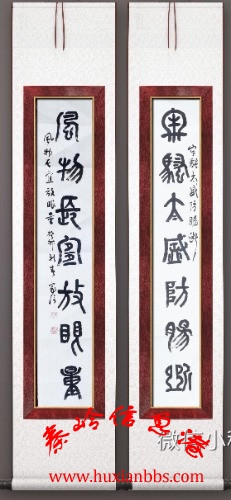 牢騷太盛防腸斷
牢骚太盛防腸断
風物長宜放眼量
风物长宜放眼量 癸卯
微信小
秦岭信息港
www.huxianbbs.com